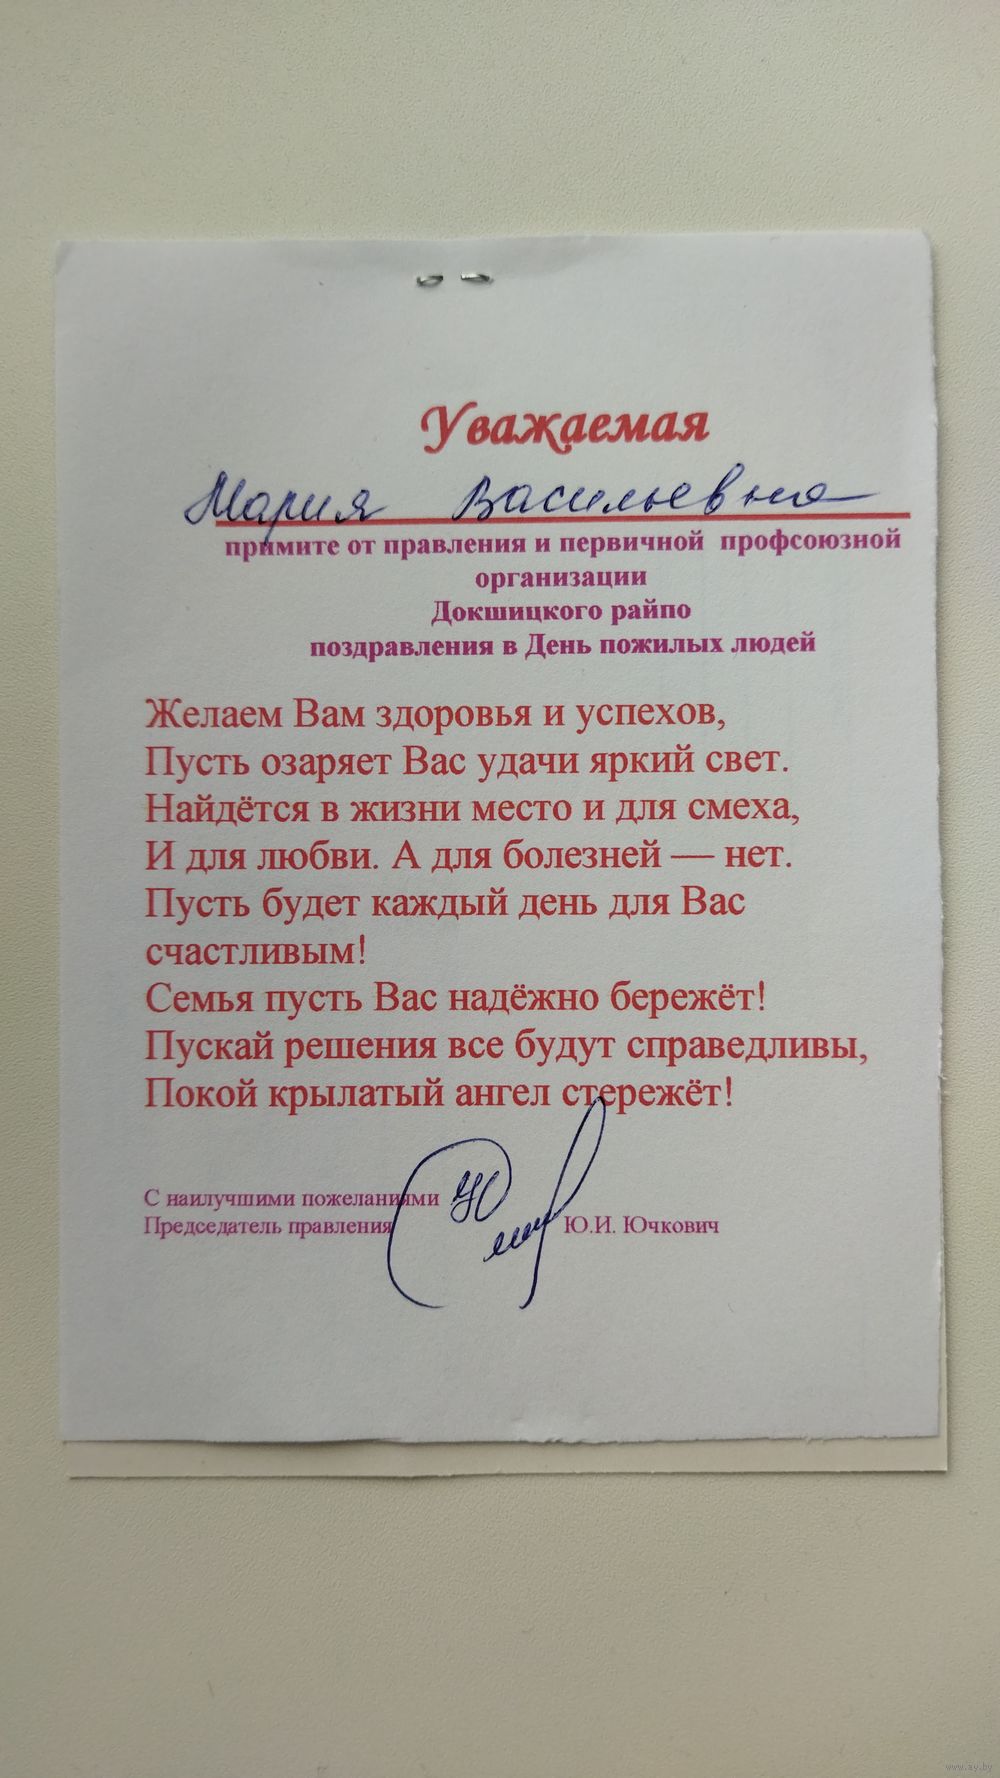 Уважаемая
Мария Васильевна
примите от правления и первичной профсоюзной
организации
Докшицкого райпо
поздравления в День пожилых людей
Желаем Вам здоровья и успехов,
Пусть озаряет Вас удачи яркий свет.
Найдётся в жизни место и для смеха,
И для любви. А для болезней — нет.
Пусть будет каждый день для Вас
счастливым!
Семья пусть Вас надёжно бережёт!
Пускай решения все будут справедливы,
Покой крылатый ангел стережёт!
С наилучшими пожеланиями
Председатель правления Ю.И. Ючкович
www.ay.by